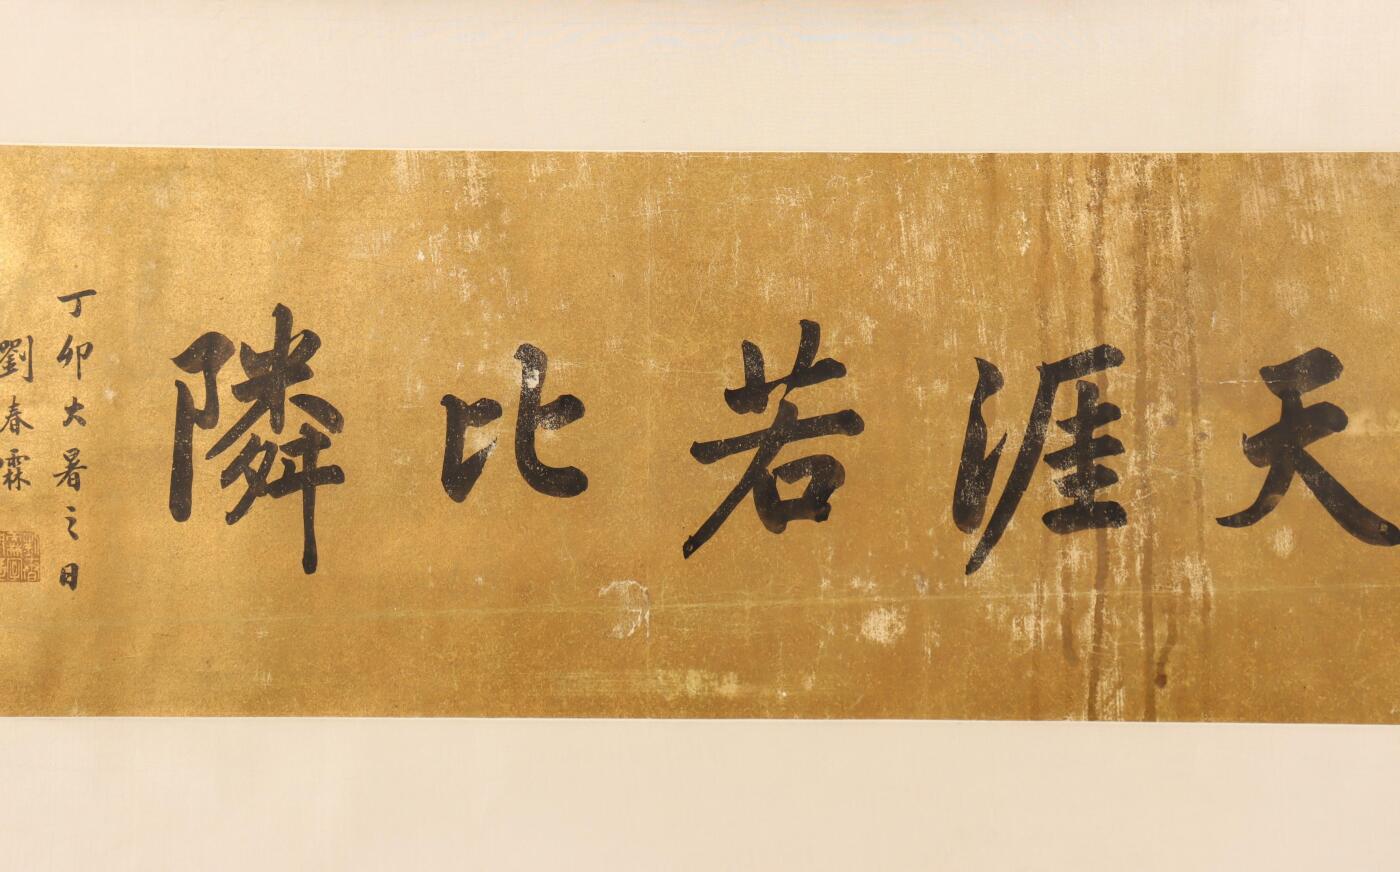 天涯若比隣
丁卯大暑之日
劉春霖